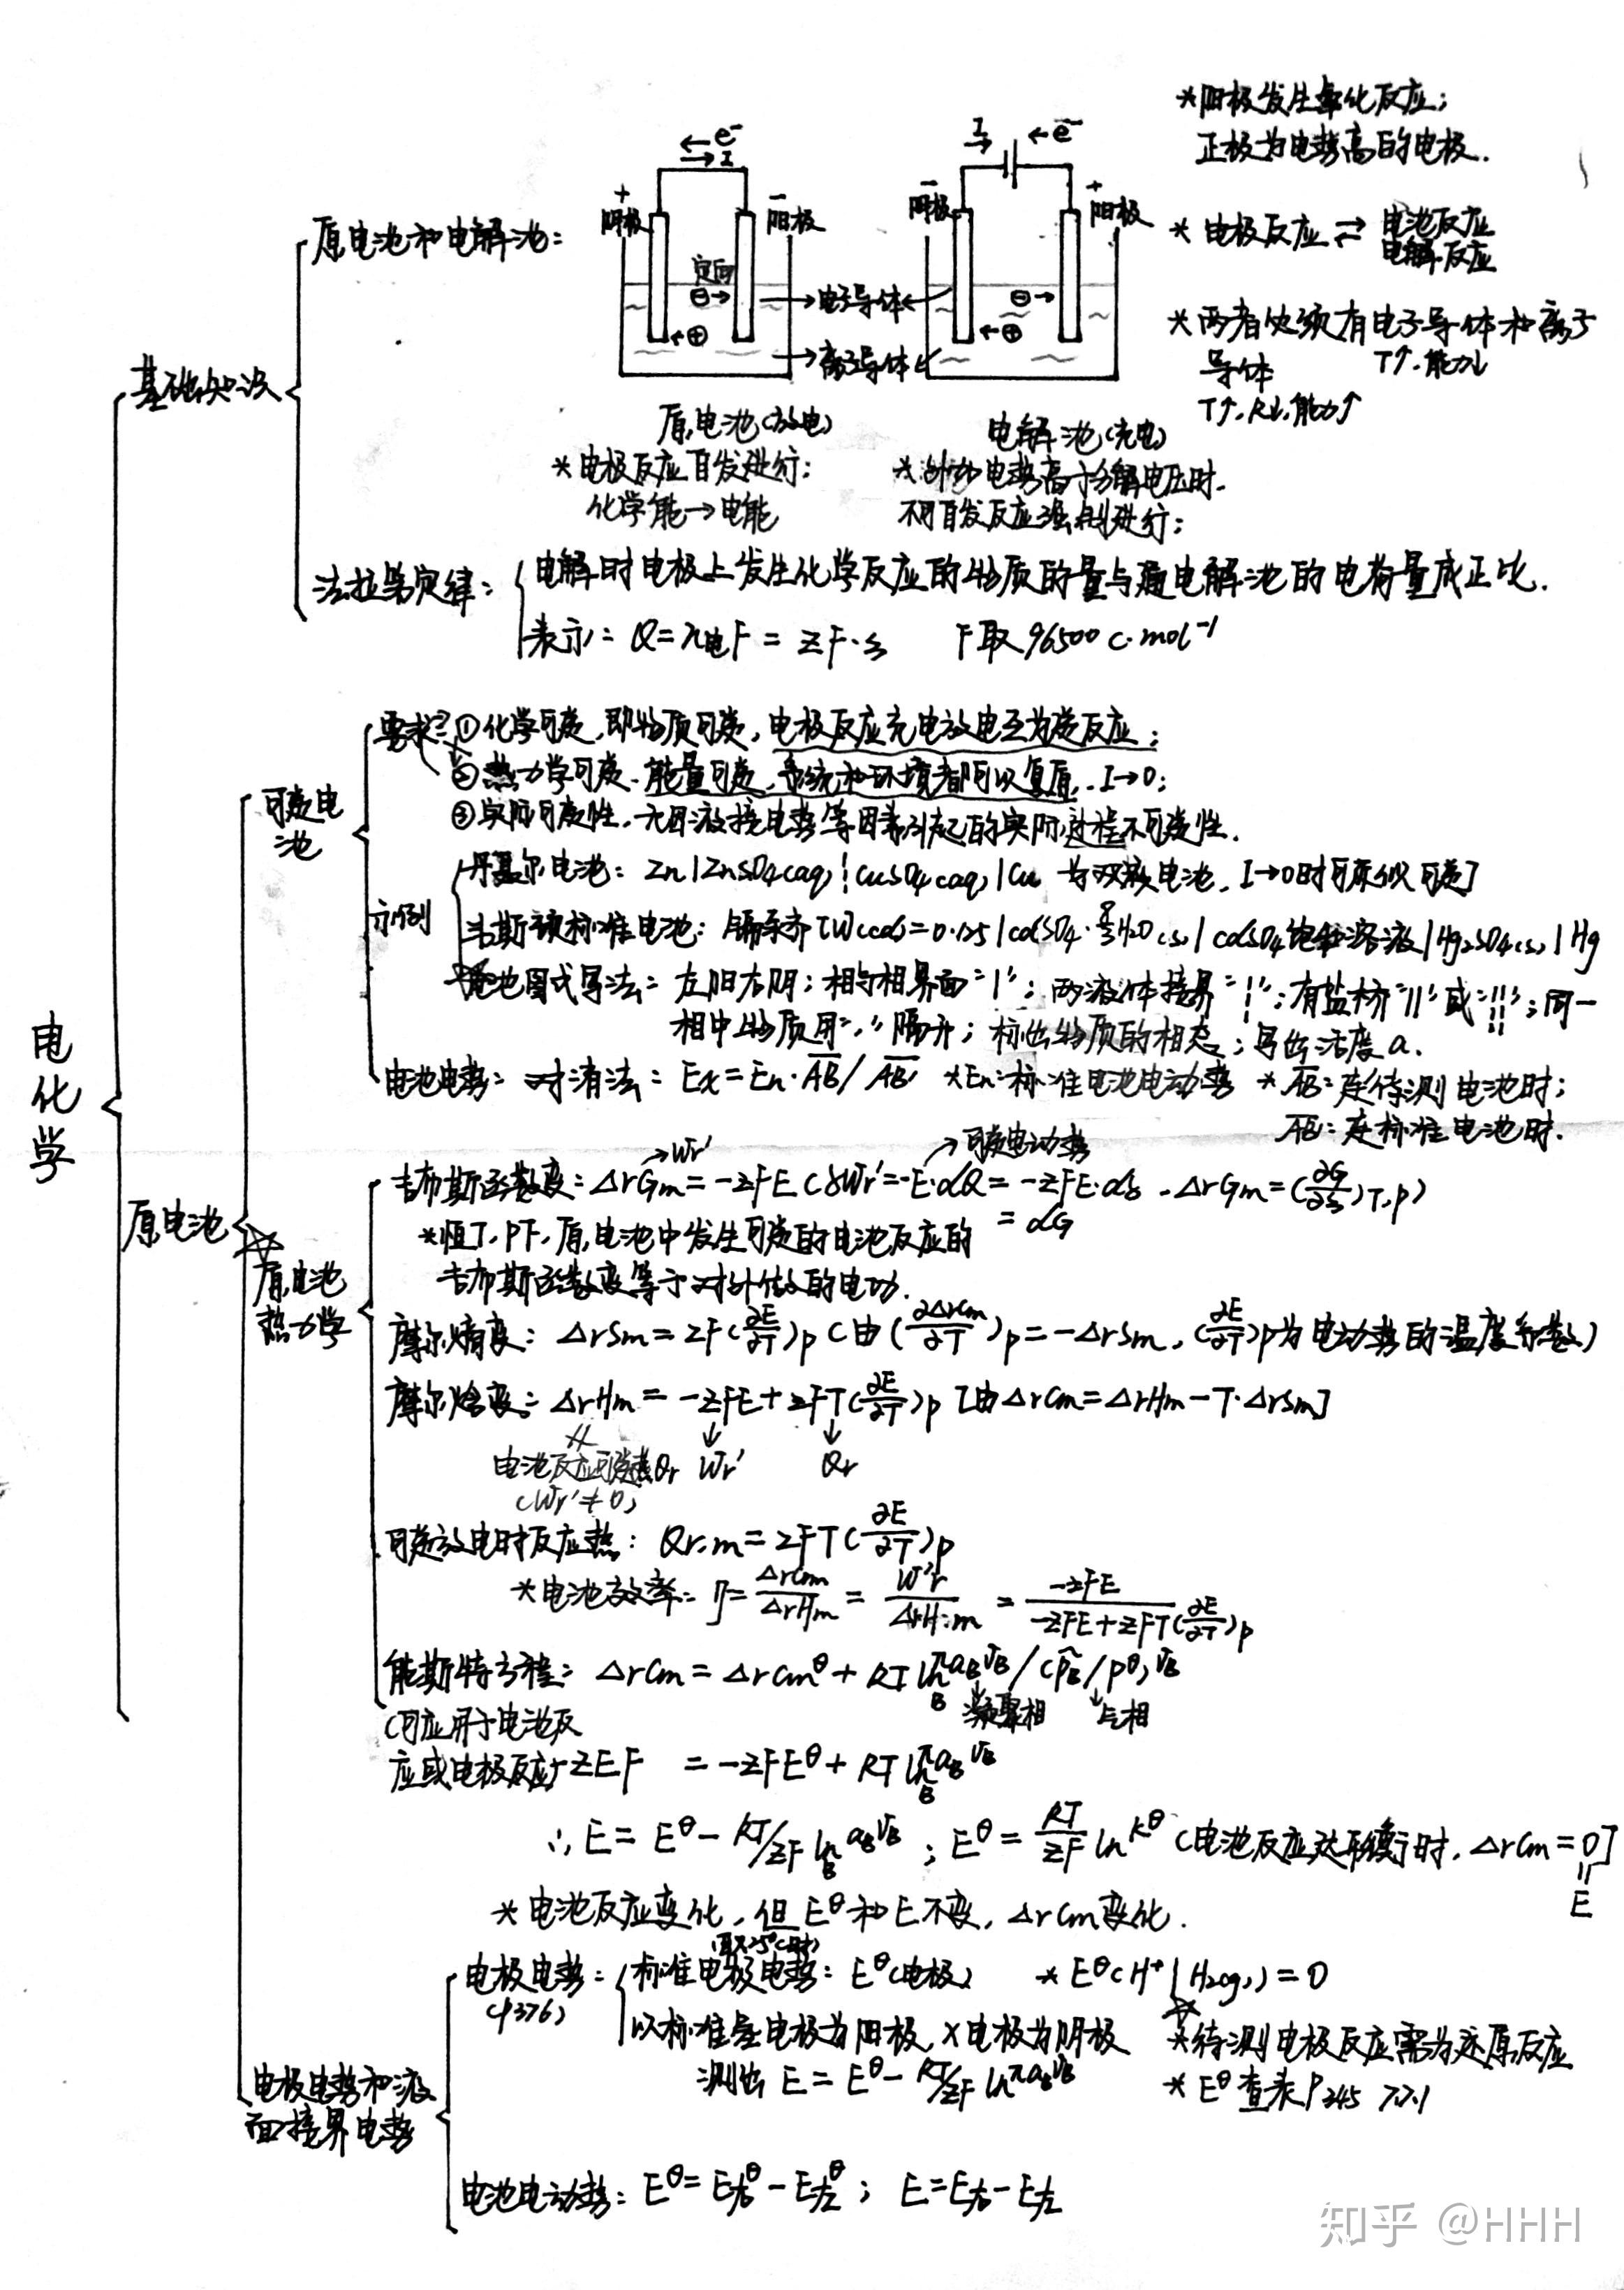 *阳极发生氧化反应;
正极为电势高的电极.
* 电极反应 ⇌ 电池反应
电解反应
*两者必须有电子导体和离子
导体 T↑.能力↓
T↑.R↓.能力↑
←e⁻
→I
+
阴极
−
阳极
定向
⊖→
←⊕
→电子导体←
→离子导体
I
→
←e⁻
−
阴极
+
阳极
⊖→
←⊕
原电池(放电)
*电极反应自发进行:
化学能→电能
电解池(充电)
*外加电势高于分解电压时.
不自发反应强制进行;
电化学
基础知识
原电池和电解池:
法拉第定律:
电解时电极上发生化学反应的物质的量与通电解池的电荷量成正比.
表示: Q=n电F = zF·ξ F取96500 C·mol⁻¹
原电池
可逆电池
要求: ①化学可逆,即物质可逆,电极反应充电放电互为逆反应;
②热力学可逆.能量可逆,系统和环境都可以复原,I→0;
③实际可逆性.无因液接电势等因素引起的实际过程不可逆性.
示例
丹聂尔电池: Zn|ZnSO4(aq)¦CuSO4(aq)|Cu 为双液电池, I→0时可近似可逆]
韦斯顿标准电池: 镉汞齐[W(Cd)=0.125|CdSO4·8/3H2O(s)|CdSO4饱和溶液|Hg2SO4(s)|Hg
电池图式写法: 左阳右阴;相与相界面"|";两液体接界"¦";有盐桥"||"或"¦¦";同一
相中物质用","隔开;标出物质的相态;写出活度a.
电池电势: 对消法: Ex=En·AB/AB' *En:标准电池电动势 *AB:连待测电池时;
AB: 连标准电池时.
原电池热力学
→Wr' →可逆电动势
吉布斯函数变: ΔrGm=-zFE (δWr'=-E·dQ=-zFE·dξ.ΔrGm=(∂G/∂ξ)T,p)
=dG
*恒T,P下,原电池中发生可逆的电池反应的
吉布斯函数变等于对外做的电功.
摩尔熵变: ΔrSm=zF(∂E/∂T)p (由(∂ΔrGm/∂T)p=-ΔrSm,(∂E/∂T)p为电动势的温度系数)
摩尔焓变: ΔrHm=-zFE+zFT(∂E/∂T)p [由ΔrGm=ΔrHm-T·ΔrSm]
电池反应可逆热Qr Wr' Qr
(Wr'≠0)
可逆放电时反应热: Qr.m=zFT(∂E/∂T)p
*电池效率: η=ΔrGm/ΔrHm=W'r/ΔrH.m=-zFE/(-zFE+zFT(∂E/∂T)p)
能斯特方程: ΔrGm=ΔrGmθ+RTlnΠaBVB/(p̃B/pθ)VB
B 凝聚相 气相
(可应用于电池反
应或电极反应)-zEF =-zFEθ+RTlnΠaBVB
∴E=Eθ-RT/zF lnΠaBVB; Eθ=RT/zF lnKθ (电池反应达平衡时.ΔrGm=0]
=E
*电池反应变化,但Eθ和E不变,ΔrGm变化.
电极电势和液面接界电势
电极电势:
(P376)
(取25℃时)
标准电极电势: Eθ(电极) *Eθ(H⁺|H2(g))=0
以标准氢电极为阳极,X电极为阴极 *待测电极反应需为还原反应
测出E=Eθ-RT/zF lnΠaBVB *Eθ查表P345 7.7.1
电池电动势: Eθ=E右θ-E左θ; E=E右-E左
知乎 @HHH